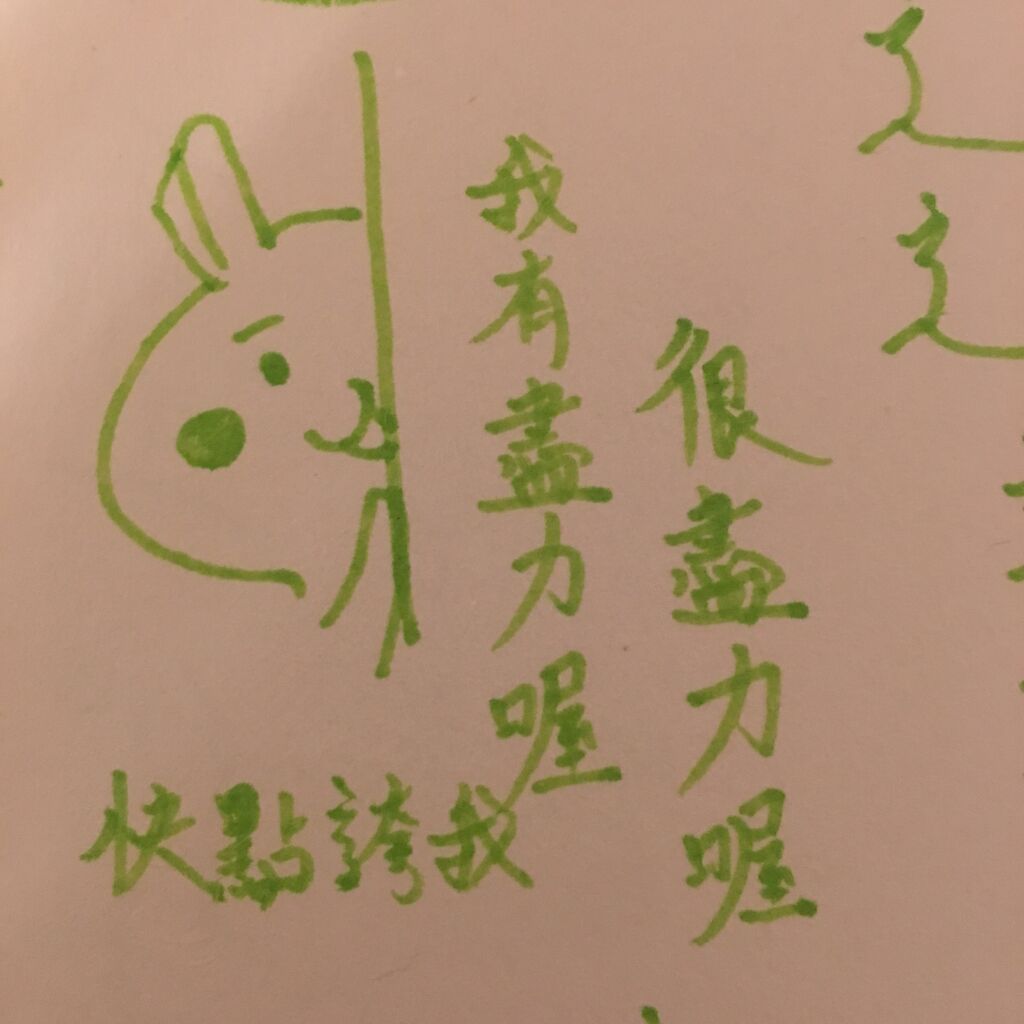 我有盡力喔
很盡力喔
快點誇我